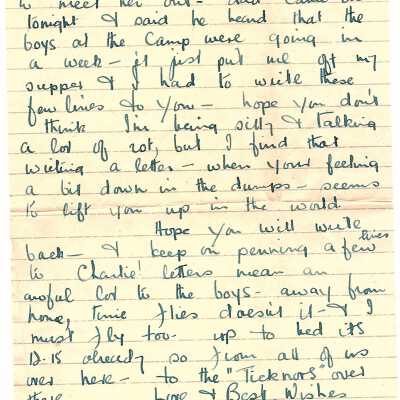 to meet her out - and came
tonight & said he heard that the
boys at the Camp were going in
a week - it just put me off my
supper & I had to write these
few lines to you - hope you don't
think I'm being silly & talking
a lot of rot, but I find that
writing a letter - when your feeling
a bit down in the dumps - seems
to lift you up in the world
Hope you will write
back - & keep on penning a few lines
to Charlie' letters mean an
awful lot to the boys - away from
home, time flies doesn't it - & I
must fly too - up to bed its
12-15 already so from all of us
over here - to the "Ticknors" over
there Love & Best Wishes